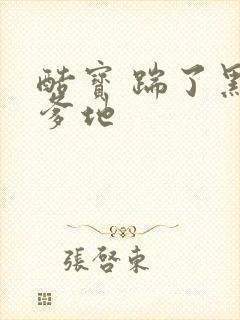 酷寶踹了黑
爹地
張啓東